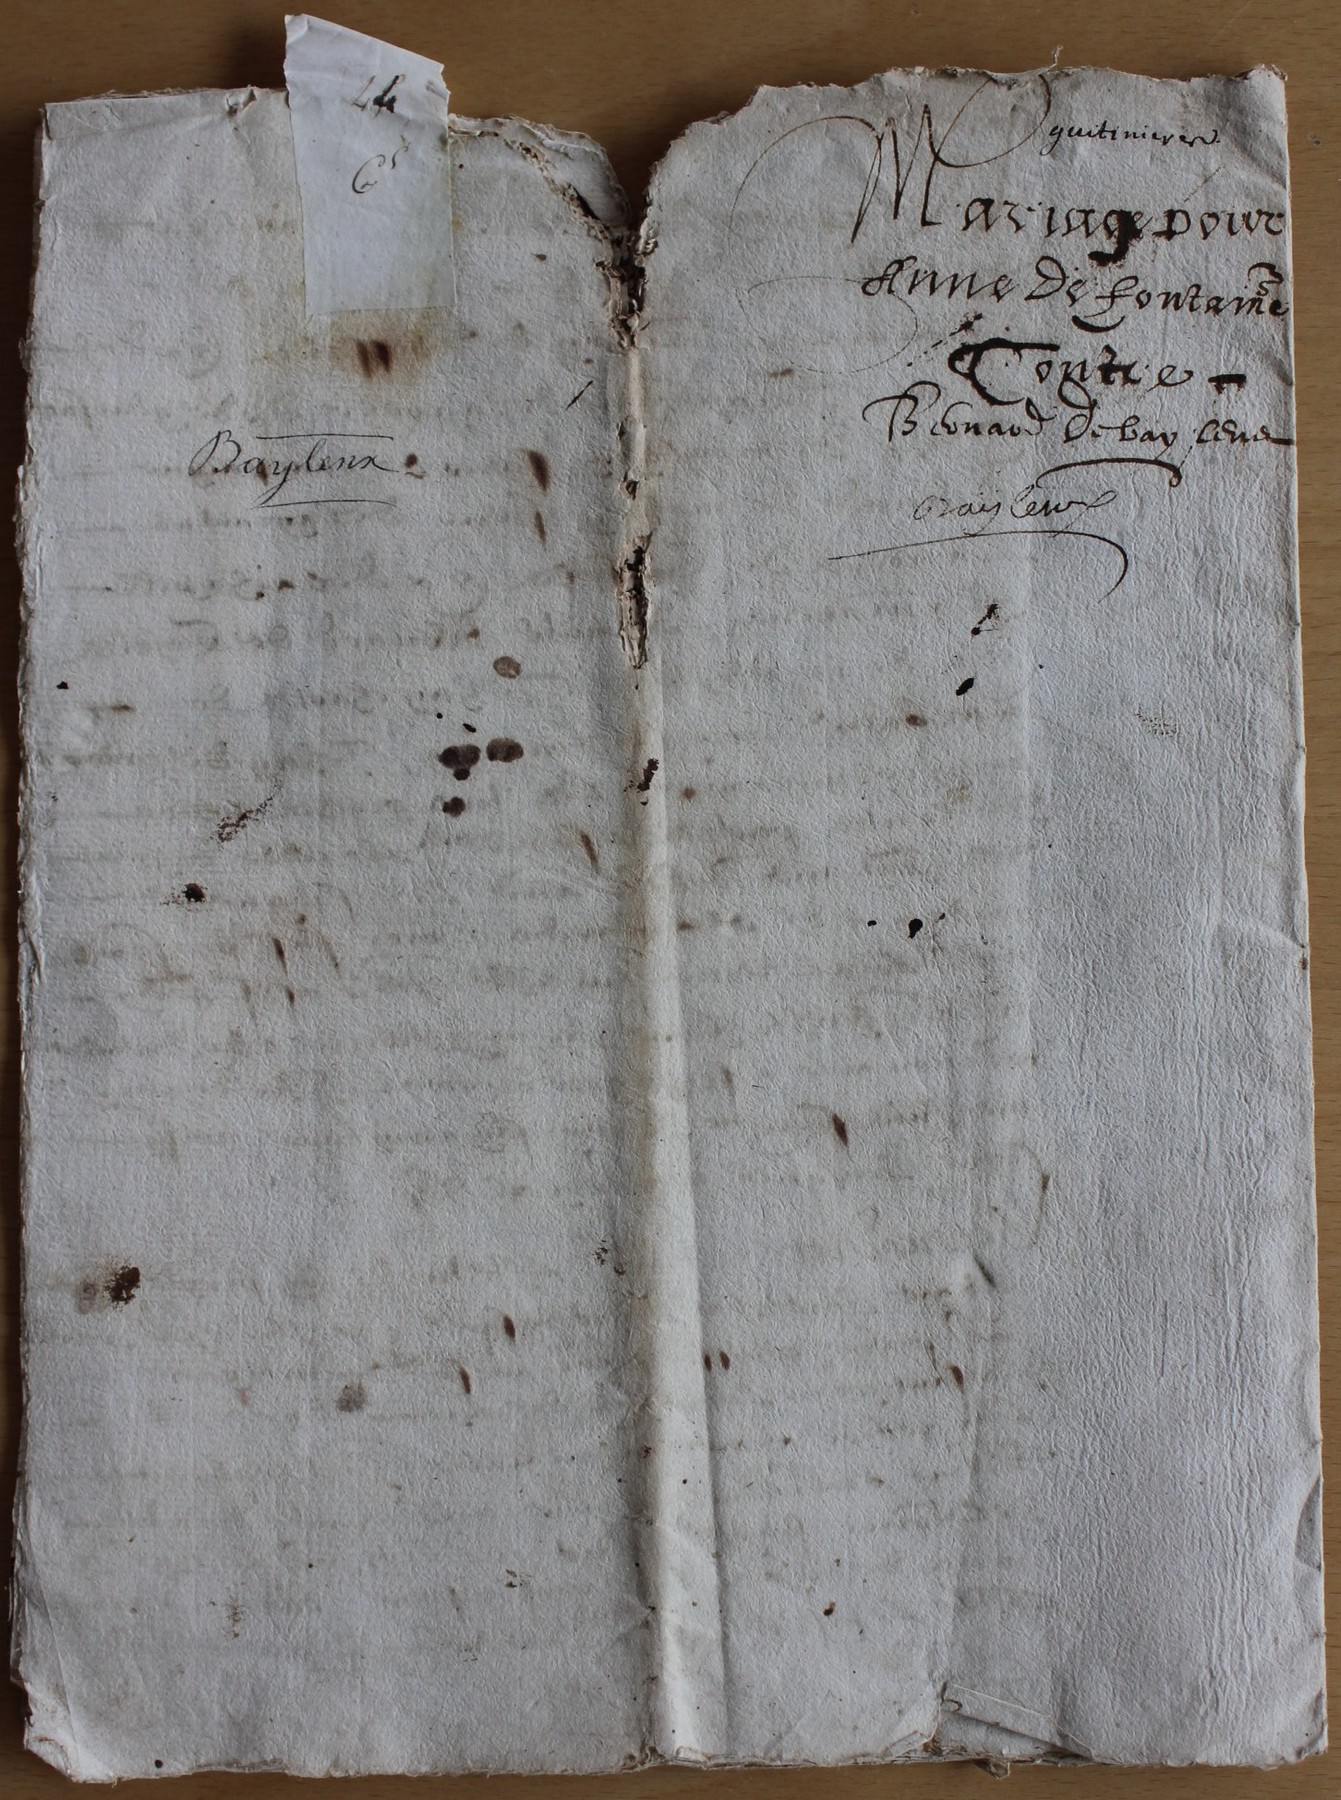 Baylenx
guitinieres
Mariage pour
Anne de fontaine
Contre
Bernard de baylenx
baylenx